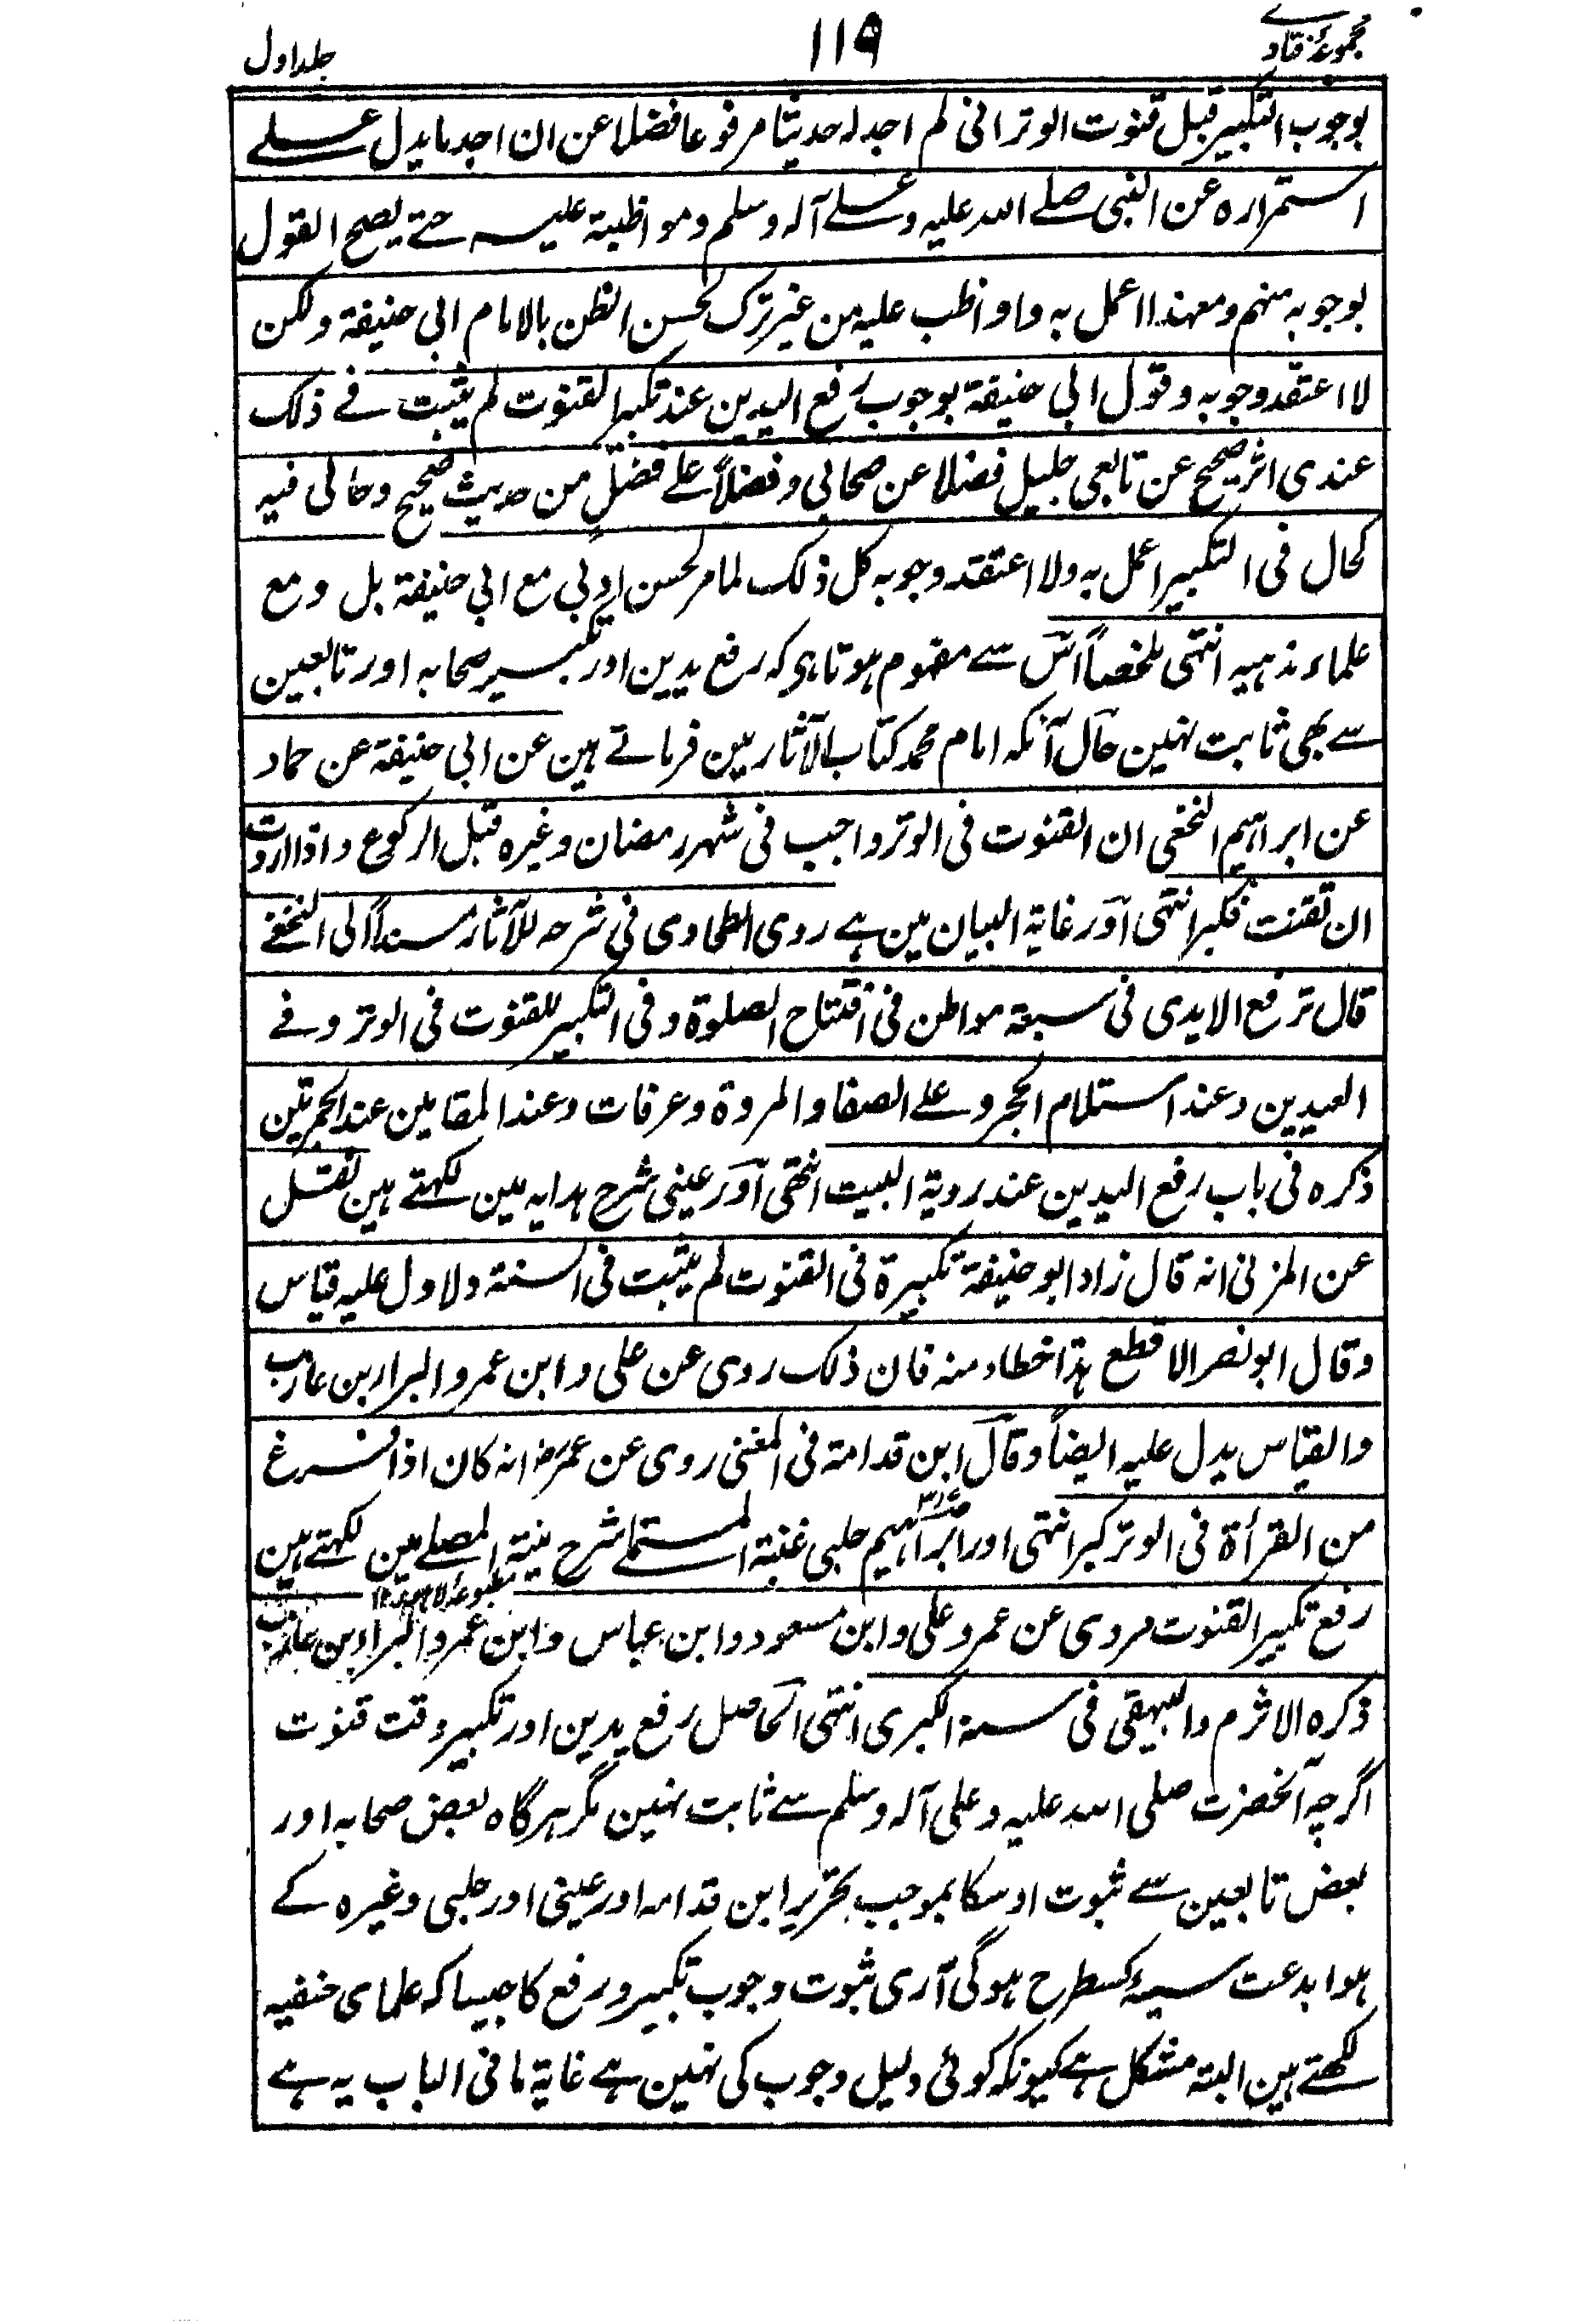 مجموعۂ فتاوے
۱۱۹
جلد اول
بوجوب التکبیر قبل قنوت الوتر انی لم اجد لہ حدیثا مرفوعا فضلا عن ان اجد ما یدل علے
استمرارہ عن النبی صلے اللہ علیہ وعلے آلہ وسلم ومواظبۃ علیہ حتے یصح القول
بوجوبہ منہم ومعہذا اعمل بہ واواظب علیہ من غیر ترک لحسن الظن بالامام ابی حنیفۃ ولکن
لا اعتقد وجوبہ وقول ابی حنیفۃ بوجوب رفع الیدین عند تکبیر القنوت لم یثبت فے ذلک
عندی اثر صحیح عن تابعی جلیل فضلا عن صحابی وفضلاً علے فضلٍ من حدیث صحیح وحالی فیہ
کحال فی التکبیر اعمل بہ ولا اعتقد وجوبہ کل ذلک لمامر لحسن ادبی مع ابی حنیفۃ بل ومع
علماء مذہبہ انتہی ملخصاً اس سے مفہوم ہوتا ہی کہ رفع یدین اور تکبیر صحابہ اور تابعین
سے بھی ثابت نہین حال آنکہ امام محمد کتاب الآثار مین فرماتے ہین عن ابی حنیفۃ عن حماد
عن ابراہیم النخعی ان القنوت فی الوتر واجب فی شہر رمضان وغیرہ قبل الرکوع واذا اردت
ان تقنت فکبر انتہی اور غایۃ البیان مین ہے روی الطحاوی فی شرحہ للآثار مسنداً الی النخعے
قال ترفع الایدی فی سبعۃ مواطن فی افتتاح الصلوۃ وفی التکبیر للقنوت فی الوتر وفے
العیدین وعند استلام الحجر وعلے الصفا والمروۃ وعرفات وعند المقامین عند الجمرتین
ذکرہ فی باب رفع الیدین عند رویۃ البیت انتہی اور عینی شرح ہدایہ مین لکہتے ہین نقل
عن المزنی انہ قال زاد ابو حنیفۃ تکبیرۃ فی القنوت لم یثبت فی السنۃ ولا دل علیہ قیاس
وقال ابو نصر الاقطع ہذا خطاء منہ فان ذلک روی عن علی وابن عمر والبراء بن عازب
والقیاس یدل علیہ ایضاً وقال ابن قدامۃ فی المغنی روی عن عمرؓ انہ کان اذا فرغ
من القرأۃ فی الوتر کبر انتہی اور ابراہیم حلبی غنیۃ المستملے شرح منیۃ المصلے مین لکہتے ہین
رفع تکبیر القنوت مروی عن عمر وعلی وابن مسعود وابن عباس وابن عمر والبراء بن عازب
ذکرہ الاثرم والبیہقی فی سننہ الکبری انتہی الحاصل رفع یدین اور تکبیر وقت قنوت
اگرچہ آنحضرت صلی اللہ علیہ وعلی آلہ وسلم سے ثابت نہین مگر ہرگاہ بعض صحابہ اور
بعض تابعین سے ثبوت اوسکا بموجب تحریر ابن قدامہ اور عینی اور حلبی وغیرہ کے
ہوا بدعت سیئہ کسطرح ہوگی آری ثبوت وجوب تکبیر ورفع کا جیسا کہ علمای حنفیہ
لکھتے ہین البتہ مشکل ہے کیونکہ کوئی دلیل وجوب کی نہین ہے غایۃ ما فی الباب یہ ہے